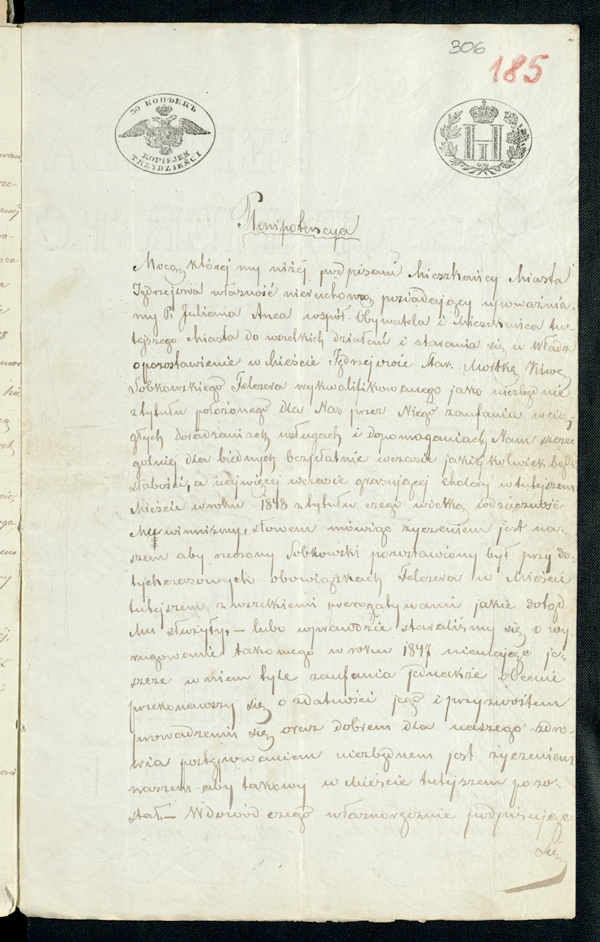 306
185
30 КОПѢЕКЪ
KOPIEJEK TRZYDZIEŚCI
Plenipotencya
Mocą której my niżej podpisani Mieszkańcy Miasta
Jędrzejowa własność nieruchomą posiadający upoważnia-
my P. Juliana współ-Obywatela i Mieszkańca tu-
tejszego Miasta do wszelkich działań i starania się u Władz
o pozostawienie w Mieście Jędrzejowie Star. Mośkę
Sobkowskiego Felczera wykwalifikowanego jako niezbędnie
z tytułu położonego dla Nas przez Niego zaufania w cią-
głych doradzaniach usługach i dopomaganiach Nam szcze-
gólniej dla biednych bezpłatnie wczasie jakiej kolwiek bądź
słabości, a najwięcej wczasie grasującej cholery w tutejszem
Mieście w roku 1848 z tytułu czego wielką wdzięczność
Mu winniśmy, słowem mówiąc życzeniem jest na-
szem aby rzeczony Sobkowski pozostawiony był przy do-
tychczasowych obowiązkach Felczera w Mieście
tutejszem z wszelkiemi prerogatywami jakie dotąd
Mu służyły, – lubo wprawdzie staraliśmy się o wy-
rugowanie takowego w roku 1847 nieufając je-
szcze w niem tyle zaufania jednakże obecnie
przekonawszy się o zdatności jego i przyzwoitem
prowadzeniu się oraz dobrem dla naszego zdro-
wia postępowaniem niezbędnem jest życzeniem
naszem aby takowy w Mieście tutejszem pozo-
stał. – W dowód czego własnoręcznie podpisujęge
się